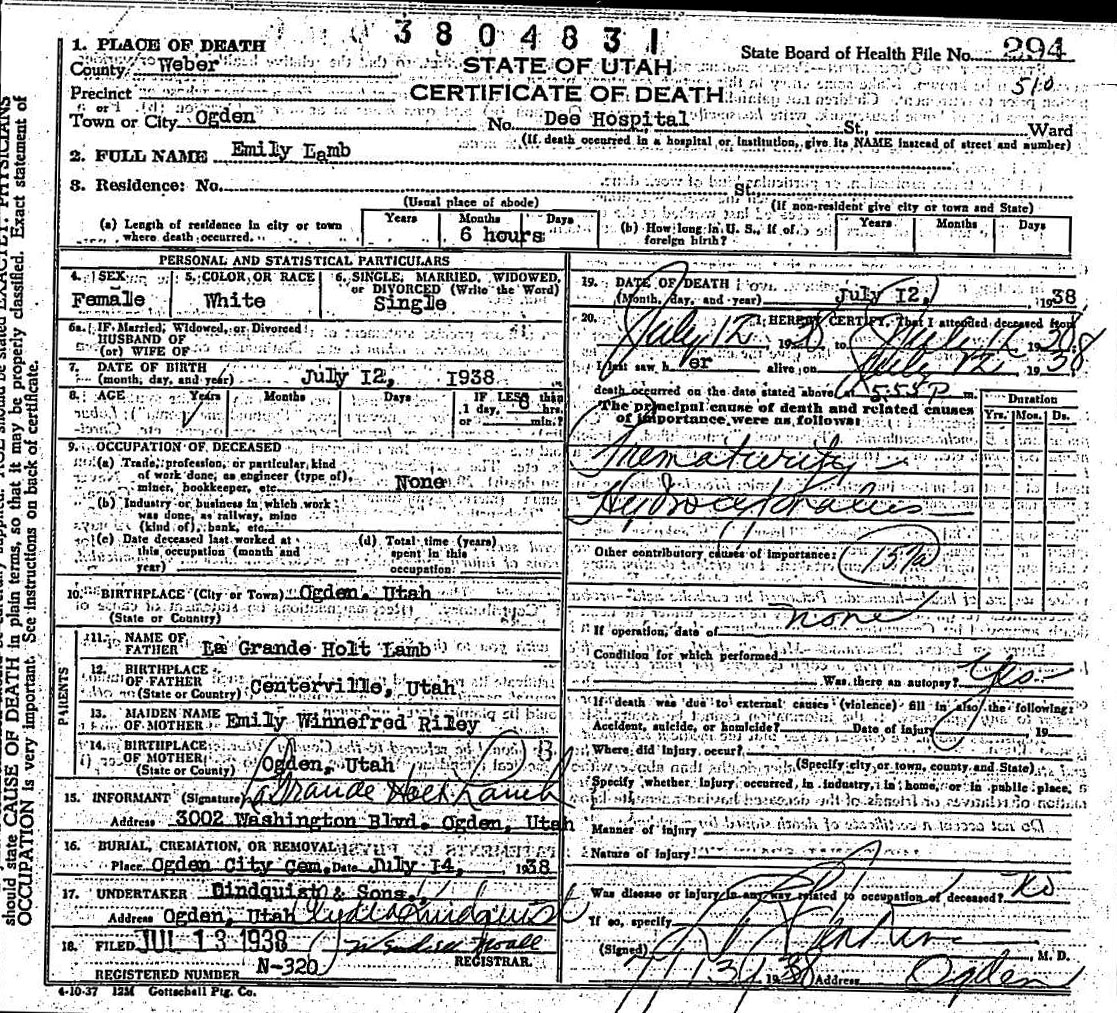 3804831
1. PLACE OF DEATH
State Board of Health File No. 294
County Weber
STATE OF UTAH
510
Precinct
CERTIFICATE OF DEATH
or
Town or City Ogden No. Dee Hospital St., Ward
(If death occurred in a hospital or institution, give its NAME instead of street and number)
2. FULL NAME Emily Lamb
3. Residence: No. St.
(Usual place of abode) (If non-resident give city or town and State)
(a) Length of residence in city or town where death occurred. Years Months Days
6 hours
(b) How long in U. S., if of foreign birth? Years Months Days
PERSONAL AND STATISTICAL PARTICULARS
4. SEX 5. COLOR OR RACE 6. SINGLE, MARRIED, WIDOWED, or DIVORCED (Write the Word)
Female White Single
6a. IF Married, Widowed, or Divorced
HUSBAND OF
(or) WIFE OF
7. DATE OF BIRTH
(month, day, and year) July 12, 1938
8. AGE Years Months Days IF LESS than
1 day, 6 hrs.
or min.?
9. OCCUPATION OF DECEASED
(a) Trade, profession, or particular kind
of work done, as engineer (type of),
miner, bookkeeper, etc. None
(b) Industry or business in which work
was done, as railway, mine
(kind of), bank, etc.
(c) Date deceased last worked at
this occupation (month and
year)
(d) Total time (years)
spent in this
occupation
10. BIRTHPLACE (City or Town) Ogden, Utah
(State or Country)
PARENTS
11. NAME OF
FATHER La Grande Holt Lamb
12. BIRTHPLACE
OF FATHER
(State or Country) Centerville, Utah
13. MAIDEN NAME
OF MOTHER Emily Winnefred Riley
14. BIRTHPLACE
OF MOTHER
(State or County) Ogden, Utah
15. INFORMANT (Signature) LaGrande Holt Lamb
Address 3002 Washington Blvd. Ogden, Utah
16. BURIAL, CREMATION, OR REMOVAL
Place Ogden City Cem. Date July 14, 1938
17. UNDERTAKER Lindquist & Sons
Address Ogden, Utah Lindquist
18. FILED JUL 13 1938
REGISTRAR.
REGISTERED NUMBER N-320
4-10-37 12M Gottschall Ptg. Co.
19. DATE OF DEATH
(Month, day, and year) July 12, 1938
20. I HEREBY CERTIFY, That I attended deceased from
July 12 1938 to July 12 1938
I last saw h er alive on July 12 1938
death occurred on the date stated above at 5:55 P m.
The principal cause of death and related causes
of importance were as follows:
Duration
Yrs. Mos. Ds.
Prematurity
Hydrocephalus
Other contributory causes of importance:
157a
none
If operation, date of
Condition for which performed
Was there an autopsy? Yes
If death was due to external causes (violence) fill in also the following:
Accident, suicide, or homicide? Date of injury 19
Where did injury occur?
(Specify city or town, county and State)
Specify whether injury occurred, in industry, in home, or in public place,
Manner of injury
Nature of injury
Was disease or injury in any way related to occupation of deceased? No
If so, specify
(Signed) Jenkins M. D.
7/13/1938 Address Ogden
should state CAUSE OF DEATH in plain terms, so that it may be properly classified. Exact statement of
OCCUPATION is very important. See instructions on back of certificate.